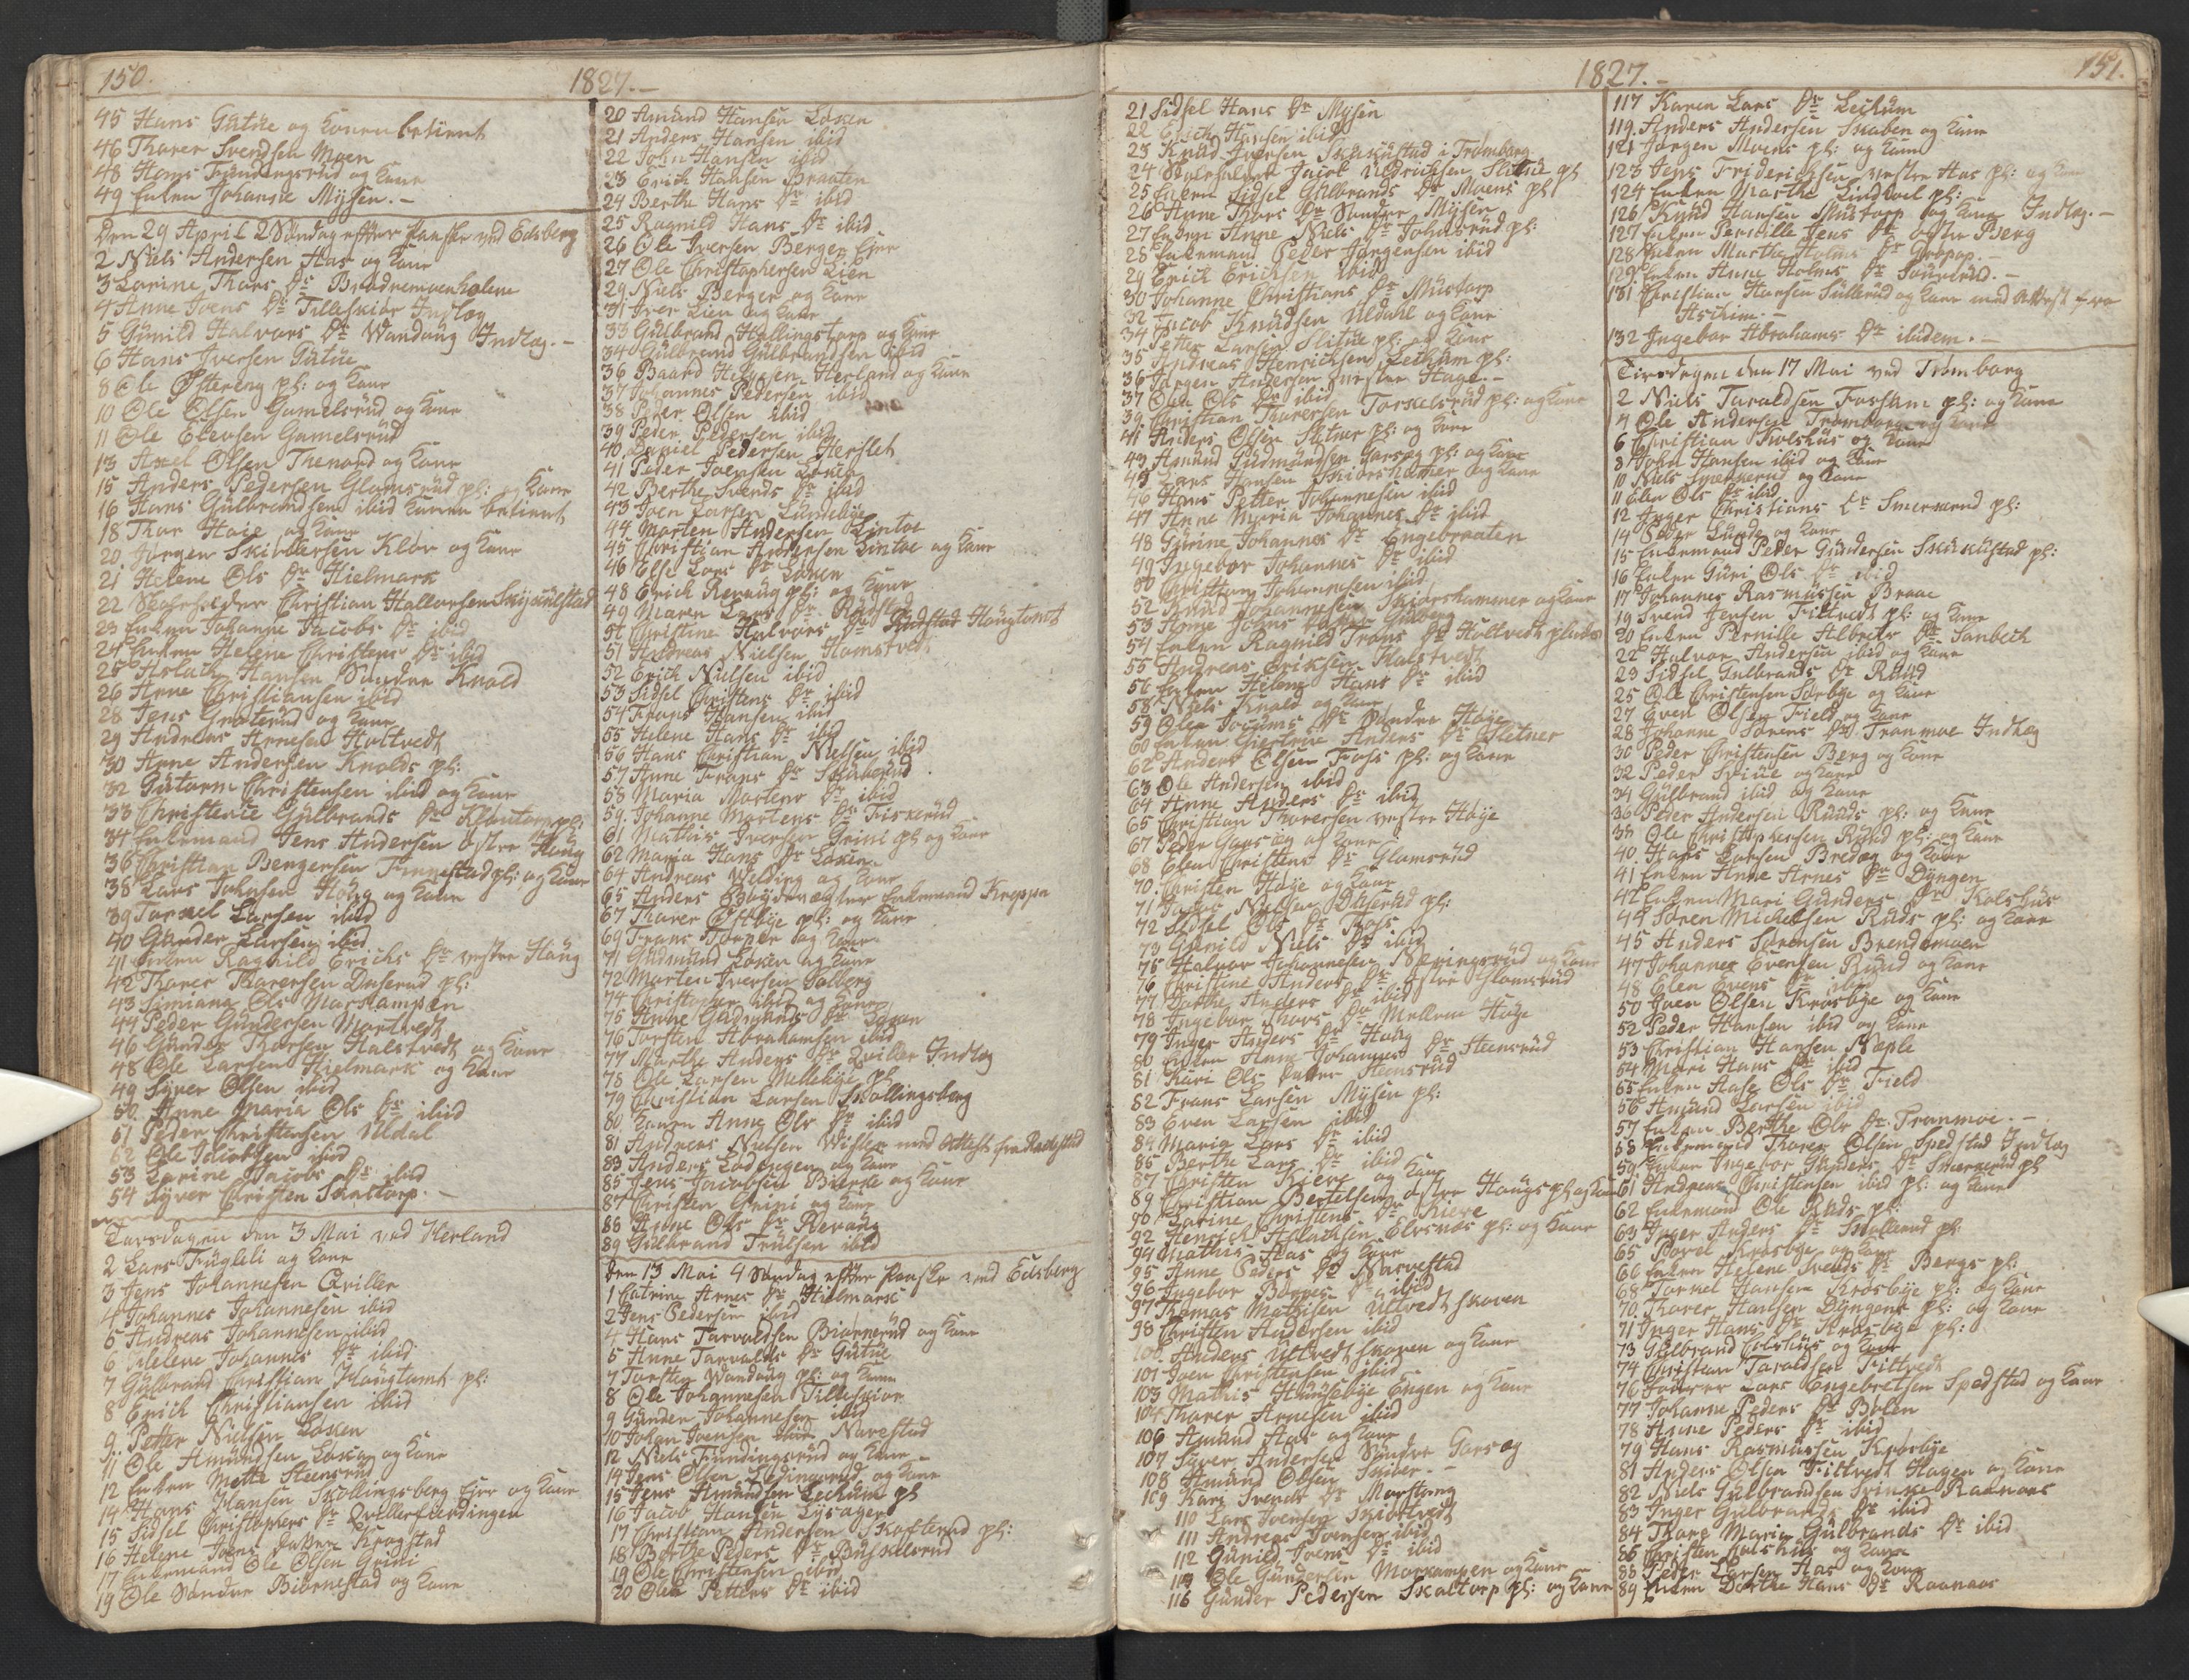 150.
1827.-
45 Hans Gütüe og Konen betient
46 Thorer Svendsen Moen
48 Hans Fündingsrüd og Kone
49 Enken Johanne Mysen. -
Den 29 April 2 Søndag efter Paaske ved Eidsberg
2 Niels Andersen Aas og Kone
3 Karine Thors Dr
4 Anne Joens Dr Tilleskiør Indlæg
5 Gunild Halvors Dr Wandaug Indlæg. -
6 Hans Iversen Gütüe
8 Ole Østereng pl: og Kone
10 Ole Olsen Gamelsrüd og Kone
11 Ole Elevsen Gamelsrüd
13 Axel Olsen Thenord og Kone
15 Anders Pedersen Glamsrüd pl: og Kone
16 Hans Gülbrandsen ibid Konen betient
18 Thor Haie og Kone
20 Jørgen Skibbersen Kløv og Kone
21 Helene Ols Dr Hielmark
22 Christian Hallvorsen
23 Enken Johanne Jacobs Dr ibid
24 Enken Helene Christens Dr ibid
25 Aslach Hansen Søndre Knold
26 Arne Christiansen ibid
28 Jens Graterüd og Kone
29 Andreas Arnesen Holtvedt
30 Arne Andersen Knolds pl:
32 Gütorm Christensen ibid og Kone
33 Christence Gülbrands Dr Klemtorp pl:
34 Enkemand Jens Andersen østre Haug
36 Christian Bengersen Finnestad pl: og Kone
38 Lars Johnsen Haug og Kone
39 Torkel Larsen ibid
40 Gunder Larsen ibid
41 Enken Ragnild Erichs Dr vestre Haug
42 Thorer Thorersen Düserud pl:
43 Simiana Ols Morskampen
44 Peder Gündersen Mortvedt
46 Gunder Thorsen Halstvedt og Kone
48 Ole Larsen Hielmark og Kone
49 Syver Olsen ibid
50 Anne Maria Ols Dr ibid
51 Peder Christensen Uldal
52 Ole Jacobsen ibid
53 Karine Jacobs Dr ibid
54 Syver Christen Skaltorp. -
Torsdagen den 3 Mai ved Herland
2 Lars Trügleli og Kone
3 Jens Johannesen Qviller
4 Johannes Johannesen ibid
5 Andreas Johannesen ibid
6 Helene Johannes Dr ibid
7 Gülbrand Christian Haugtomt pl:
8 Erich Christiansen ibid
9. Petter Nielsen Løken
11 Ole Amündsen Løken og Kone
12 Enken Mette Steensrüd
14 Hans Hansen Skollingsberg Eier og Kone
15 Sidsel Christophers Dr Qvillerfierdingen
16 Helene Joens Datter Krogstad
17 Enkemand Ole Olsen Grini
19 Ole Søndre Biørnestad og Kone
20 Amünd Hansen Løken
21 Anders Hansen ibid
22 John Hansen ibid
23 Erich Hansen Braaten
24 Berthe Hans Dr ibid
25 Ragnild Hans Dr ibid
26 Ole Iversen Berger Eier
27 Ole Christophersen Lien
29 Niels Berger og Kone
31 Iver Lien og Kone
33 Gülbrand Hallingstorp og Kone
34 Gülbrand Gülbrandsen ibid
36 Baard Helgesen Herland og Kone
37 Johannes Pedersen ibid
38 Peder Olsen ibid
39 Peder Pedersen ibid
40 Daniel Pedersen Herslet
41 Peder Joensen Løken
42 Berthe Svends Dr ibid
43 Joen Larsen Lundebye
44 Morten Andersen Lintoe
45 Christian Andersen Lintoe og Kone
46 Else Lars Dr Løken
48 Erich Revaug pl: og Kone
49 Maren Lars Dr Rüdstad
50 Christine Halvors Dr Haugtomt
51 Andreas Nielsen Homstvedt
52 Erich Nielsen ibid
53 Sidsel Christens Dr ibid
54 Frans Hansen ibid
55 Helene Hans Dr ibid
56 Hans Christian Nielsen ibid
57 Anne Frans Dr
58 Maria Mortens Dr ibid
59. Johanne Mortens Dr Fiskerüd
61 Mathis Iversen Grini pl: og Kone
62 Maria Hans Dr Løken
64 Andreas Velding og Kone
65 Anders Enkemand Kroppen
67 Thorer Østbye pl: og Kone
69 Frans Torper og Kone
71 Gudmund Løken og Kone
72 Morten Iversen Solberg
74 Christopher ibid og Kone
75 Anne Gudmunds Dr Løken
76 Torsten Abrahamsen ibid
77 Marthe Anders Dr Qviller Indlæg
78 Ole Larsen Mellebye pl:
79 Christian Larsen Skollingsberg
80 Konen Anne Ols Dr ibid
81 Andreas Nielsen Wisler med Attest fra Rackestad
83 Anders Lødengen og Kone
85 Jens Jacobsen Bierke og Kone
87 Christen Grini og Kone
88 Anne Ols Dr Revaug
89 Gülbrand Trülsen ibid
Den 13 Mai 4 Søndag efter Paaske ved Edsberg
1 Catrine Arnes Dr Hielmark
2 Jens Pedersen ibid
4 Hans Torvaldsen Biørnerüd og Kone
5 Anne Torvalds Dr Gütüe
7 Torsten Wandaug pl: og Kone
8 Ole Johannesen Tilleskiør
9 Gunder Johannesen ibid
10 Johan Joensen Narvestad
12 Niels Fundingsrüd og Kone
14 Jens Olsen og Kone
15 Jens Amundsen Leckum pl
16 Jacob Hansen Lysager
17 Christian Andersen Skofterud pl:
18 Berthe Peders Dr Buskelsrud
19 Ole Christensen ibid
20 Olea Petters Dr ibid
1827.-
151.
21 Sidsel Hans Dr Mysen
22 Erich Hansen ibid
23 Knud Iversen Skukustad i Trømborg
24 Jacob Uldrichsen Slitüe pl
25 Enken Sidsel Gülbrands Dr Moens pl
26 Anne Thors Dr Søndre Mysen
27 Enken Anne Niels Dr Johnsrüd pl:
28 Enkemand Peder Jørgensen ibid
29 Erich Erichsen ibid
30 Johanne Christians Dr Mustorp
32 Jacob Knudsen Uldahl og Kone
34 Petter Larsen Slitüe pl: og Kone
35 Andreas Henrichsen Leckum pl:
36 Jørgen Andersen vestre Hage. -
37 Olea Ols Dr ibid
39 Christian Thorersen Torkelsrüd pl: og Kone
41 Anders Olsen Sletner pl: og Kone
43 Amund Gudmundsen Garseg pl: og Kone
45 Lars Hansen Skiørshammer og Kone
46 Hans Petter Johannesen ibid
47 Anne Maria Johannes Dr ibid
48 Gurine Johannes Dr Engebraaten
49 Ingebor Johannes Dr ibid
50 Christian Johannesen ibid
52 Knud Johannesen Skiørshammer og Kone
53 Anne Johns Datter
54 Enken Ragnild Frans Dr Holtvedt
55 Andreas Erichsen Halstvedt
56 Enken Helene Hans Dr ibid
58 Niels Knold og Kone
59 Olea Jocums Dr Søndre Høye
60 Enken Giertrue Anders Dr Sletner
62 Anders Olsen Foss pl: og Kone
63 Ole Andersen ibid
64 Anne Anders Dr ibid
65 Christian Thoresen vestre Høye
67 Peder Garseg og Kone
68 Elen Christens Dr Glamsrüd
70. Christen Høye og Kone
71 Nielsen Düserüd pl:
72 Sidsel Ols Dr Foss
73 Gunild Niels Dr ibid
75 Halvor Johannesen Næringsrüd og Kone
76 Christine Anders Dr østre Glomsrüd
77 Dorthe Anders Dr ibid
78 Ingebor Thors Dr Mellem Høye
79 Inger Anders Dr Haug
80 Enken Anne Johannes Dr Steensrüd
81 Kari Ols Datter Steensrüd
82 Frans Larsen Mysen pl:
83 Even Larsen ibid
84 Maria Lars Dr ibid
85 Berthe Lars Dr ibid
87 Christen Kiere og Kone
89 Christian Bertelsen østre Haugs pl og Kone
90 Karine Christens Dr Kiere
92 Henrich Aslachsen Elvsnæs pl: og Kone
94 Mathis Aas og Kone
95 Anne Peders Dr Narvestad
96 Ingebor Børres Dr ibid
97 Thomas Mathisen Ultvedt skoven
98 Christen Andersen ibid
100 Anders Ultvedt skoven og Kone
101 Joen Christensen ibid
103 Mathis Haugebye Engen og Kone
104 Thorer Arnesen ibid
106 Amünd Aas og Kone
107 Syver Andersen Søndre Garseg
108 Amünd Olsen Skiber. -
109 Kari Svends Dr Morstang
110 Lars Joensen Skiøltvedt
111 Andreas Joensen ibid
112 Gunild Joens Dr ibid
114 Ole Gundersen Morkampen og Kone
116 Gunder Pedersen Skaltorp pl: og Kone
117 Karen Lars Dr Leckum
119. Anders Andersen Skaben og Kone
121 Jørgen Moens pl: og Kone
123 Jens Friderichsen vestre Aas pl: og Kone
124 Enken Marthe Lindhol pl:
126 Knüd Hansen Mustorp og Kone Indlæg. -
127 Enken Pernille Jens Dr østre Berg
128 Enken Marthe Holms Dr Gropop. -
129 Enken Anne Holms Dr
131 Christian Hansen Süllerüd og Kone med Attest fra
Aschim. -
132 Ingebor Abrahams Dr ibidem. -
Tirsdagen den 17 Mai ved Trømborg
2 Niels Taraldsen Fossum pl: og Kone
4 Ole Andersen Trømborg og Kone
6 Christian Kolshüs og Kone
8 John Hansen ibid og Kone
10 Niels Smerkerud og Kone
11 Elen Ols Dr ibid
12 Inger Christians Dr Smerkerud pl:
14 Peder Lunde og Kone
15 Enkemand Peder Gundersen Skukustad pl:
16 Enken Guri Ols Dr ibid
17 Johannes Rasmussen Braae
19 Svend Jensen Fittvedt pl: og Kone
20 Enken Pernille Albrets Dr Sanbech
22 Halvor Andersen ibid og Kone
23 Sidsel Gulbrands Dr Rüüd
25 Ole Christensen Sørbye og Kone
27 Even Olsen Field og Kone
28 Johanne Sørens Dr Tranmoe Indlæg
30 Peder Christensen Berg og Kone
32 Peder Sviüe og Kone
34 Gülbrand ibid og Kone
36 Peder Andersen Rüüds pl: og Kone
38 Ole Christophersen Rüüd pl: og Kone
40. Hans Larsen Bredæg og Kone
41 Enken Anne Arnes Dr Dyngen
42 Enken Mari Gunders Dr Kolshüs
44 Søren Michelsen Rüds pl: og Kone
45 Anders Sørensen Brendemoen
47 Johannes Evensen Rüüd og Kone
48 Elen Evens Dr ibid
50 Joen Olsen Krosbye og Kone
52 Peder Hansen ibid og Kone
53 Christian Hansen Næple
54 Mari Hans Dr ibid
55 Enken Aase Ols Dr Field
56 Amünd Larsen ibid
57 Enken Berthe Ols Dr Tranmoe. -
58 Enkemand Thorer Olsen Spedstad Indlæg
59. Enken Ingebor Gunders Dr Smerkerüd pl
61 Andreas Christensen ibid pl: og Kone
62 Enkemand Ole Rüds pl:
63 Inger Anders Dr pl:
65 Povel Krosbye og Kone
66 Enken Helene Svends Dr Bergs pl:
68 Tormel Hansen Krosbye pl: og Kone
70. Thorer Hansen Dyngens pl: og Kone
71 Inger Hans Dr Krosbye pl:
73 Gülbrand Kolshüs og Kone
74 Christian Taraldsen Fittvedt
76 Lars Engebretsen Spedstad og Kone
77 Johanne Peders Dr Bolen
78 Anne Peders Dr ibid
79 Hans Rasmussen Krosbye
81 Anders Olsen Fittvedt Hagen og Kone
82 Niels Gülbrandsen Raanaas
83 Inger Gülbrands Dr ibid
84 Thore Maria Gülbrands Dr ibid
86 Christen Kolshüs og Kone
88 Peder Larsen Aas og Kone
89 Enken Dorthe Hans Dr Raanaas